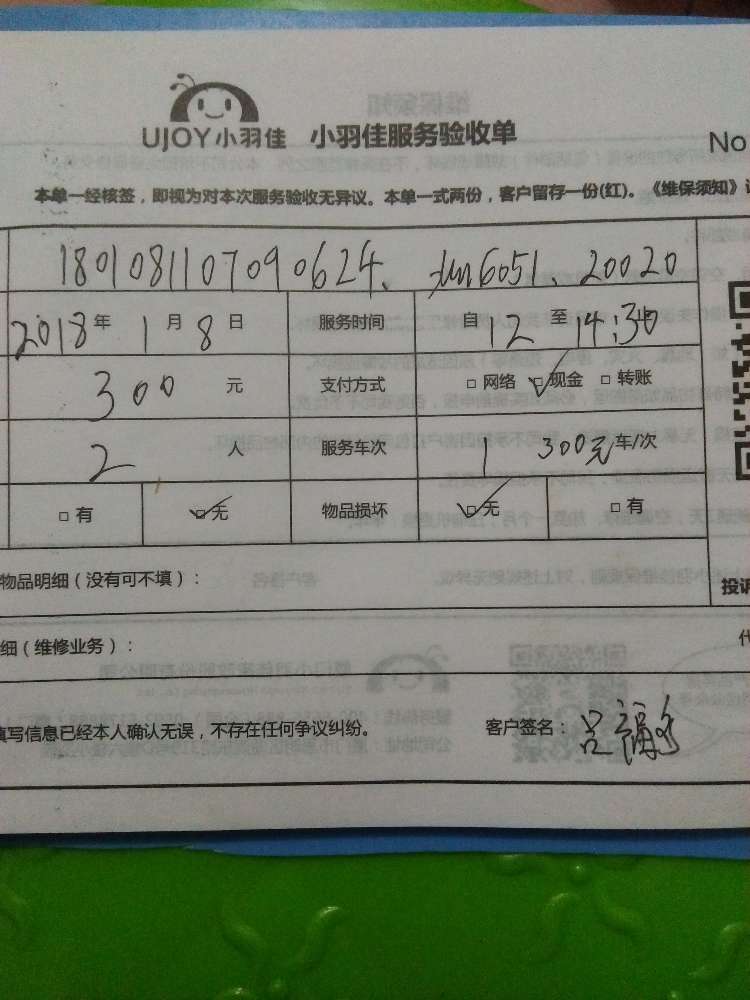 UJOY小羽佳 小羽佳服务验收单
No
本单一经核签，即视为对本次服务验收无异议。本单一式两份，客户留存一份(红)。《维保须知》
1801081107090624、 6051、20020
2018年 1月8日 服务时间 自12至14:30
300元 支付方式 □网络 ☑现金 □转账
2人 服务车次 1 300元 车/次
□有 ☑无 物品损坏 ☑无 □有
物品明细（没有可不填）：
投诉
细（维修业务）：
填写信息已经本人确认无误，不存在任何争议纠纷。 客户签名：吕福